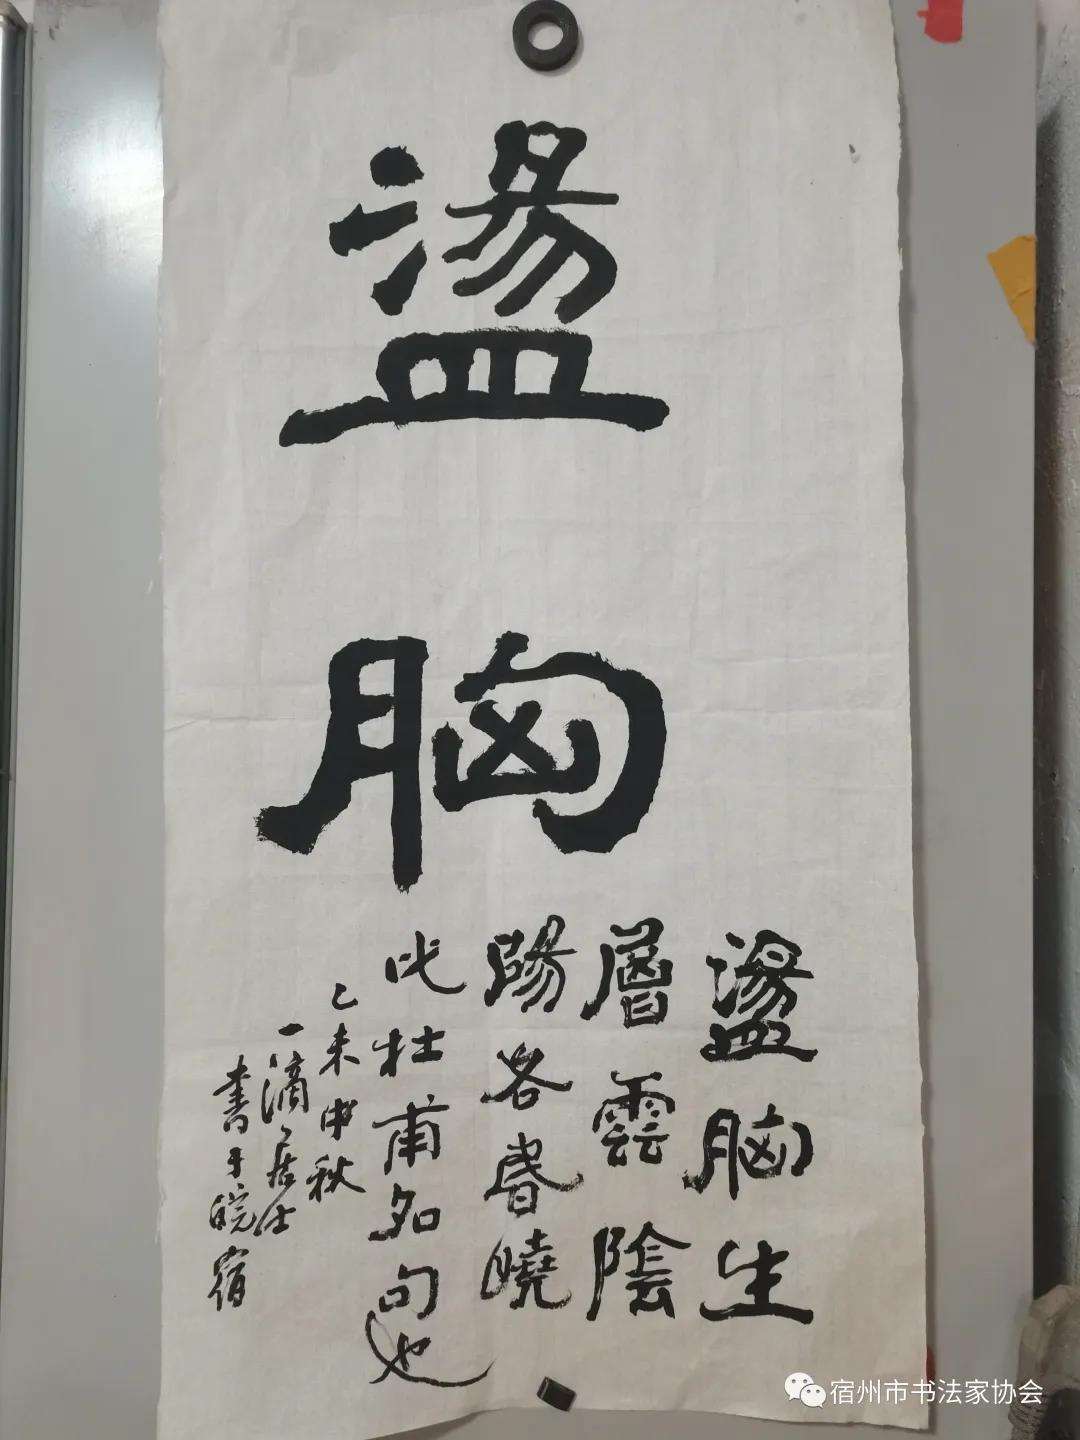 盪胸
盪胸生
層雲陰
陽各昏曉
此杜甫名句也
乙未中秋
一滴居士
書于皖宿
宿州市书法家协会